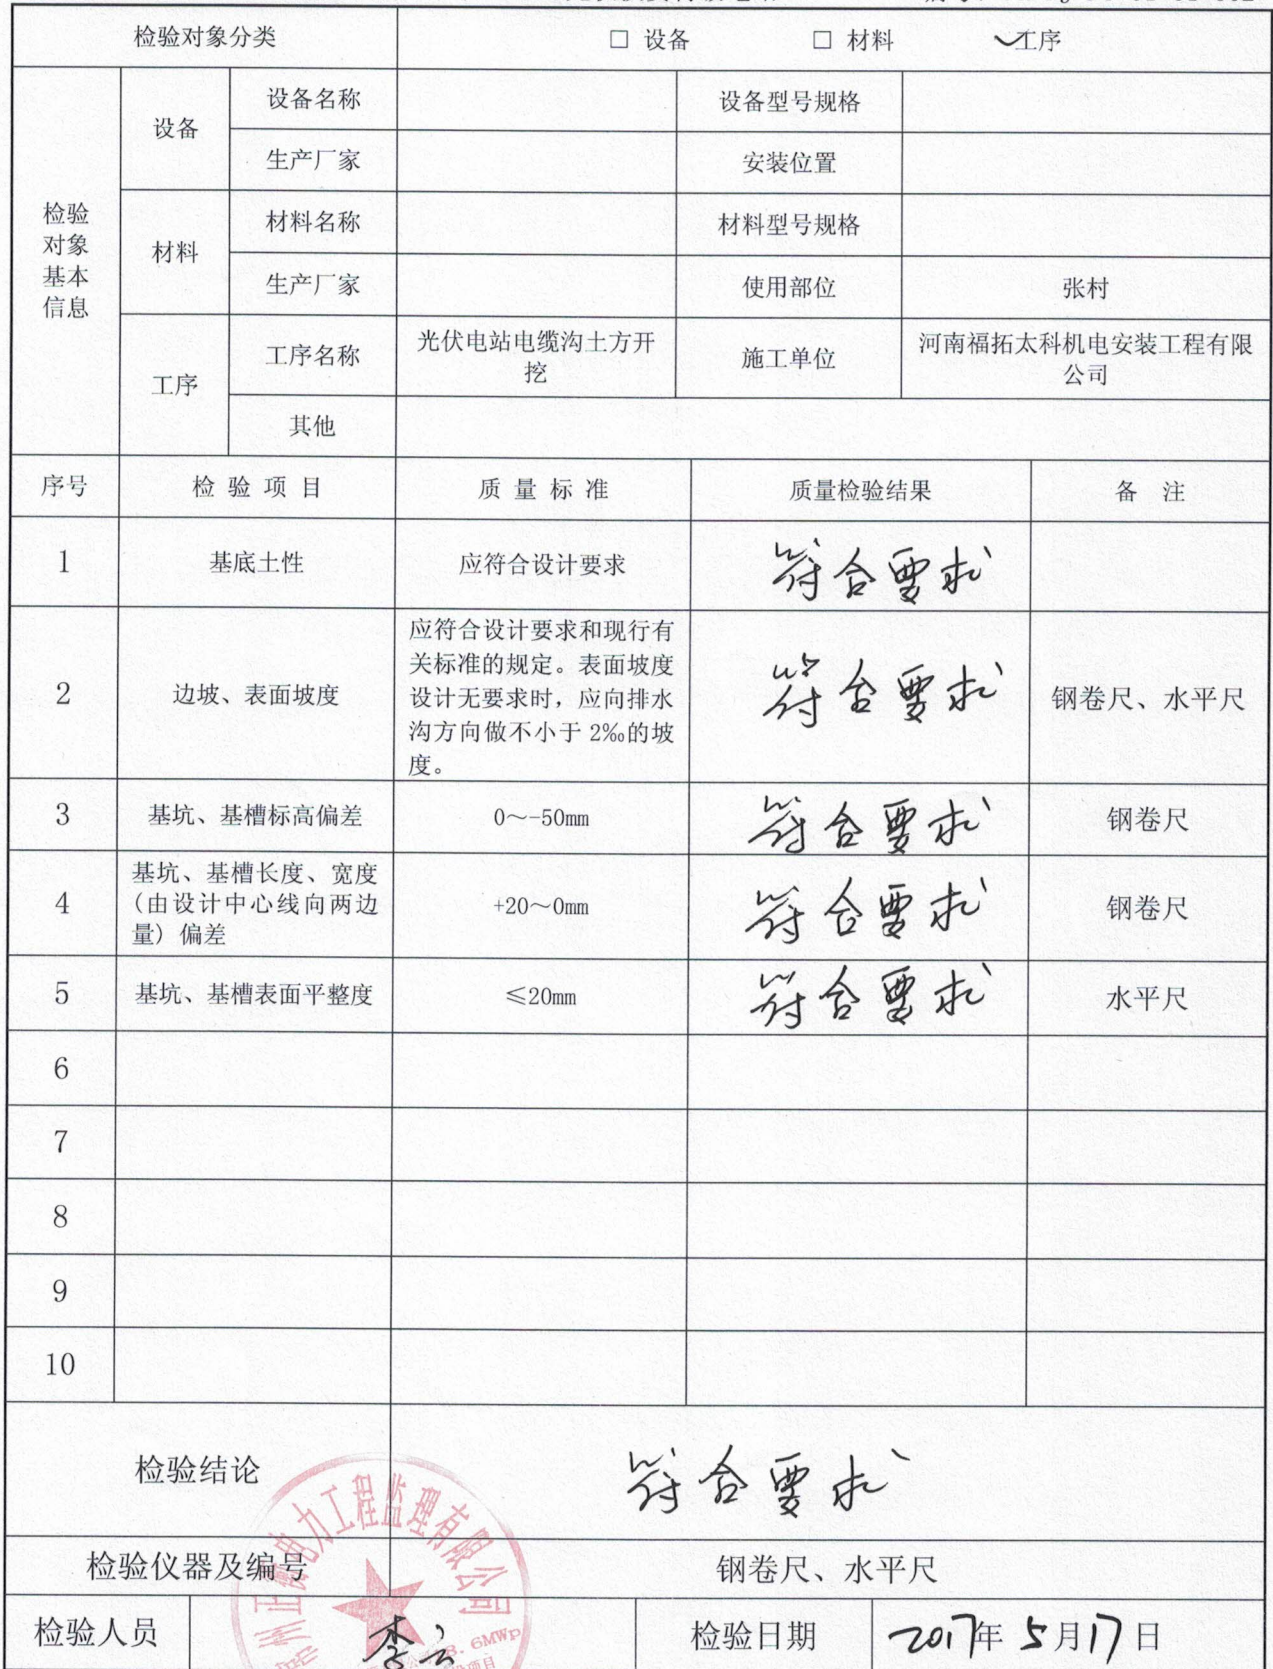 检验对象分类 □ 设备 □ 材料 ✓工序
检验对象基本信息
设备 设备名称 设备型号规格
生产厂家 安装位置
材料 材料名称 材料型号规格
生产厂家 使用部位 张村
工序 工序名称 光伏电站电缆沟土方开 施工单位 河南福拓太科机电安装工程有限
挖 公司
其他
序号 检验项目 质量标准 质量检验结果 备注
1 基底土性 应符合设计要求 符合要求
应符合设计要求和现行有
关标准的规定。表面坡度
2 边坡、表面坡度 设计无要求时，应向排水 符合要求 钢卷尺、水平尺
沟方向做不小于 2‰的坡
度。
3 基坑、基槽标高偏差 0～-50mm 符合要求 钢卷尺
基坑、基槽长度、宽度
4 （由设计中心线向两边 +20～0mm 符合要求 钢卷尺
量）偏差
5 基坑、基槽表面平整度 ≤20mm 符合要求 水平尺
6
7
8
9
10
检验结论 符合要求
电力工程监理有限公司
检验仪器及编号 钢卷尺、水平尺
检验人员 检验日期 2017年5月17日
8.6MWp
项目